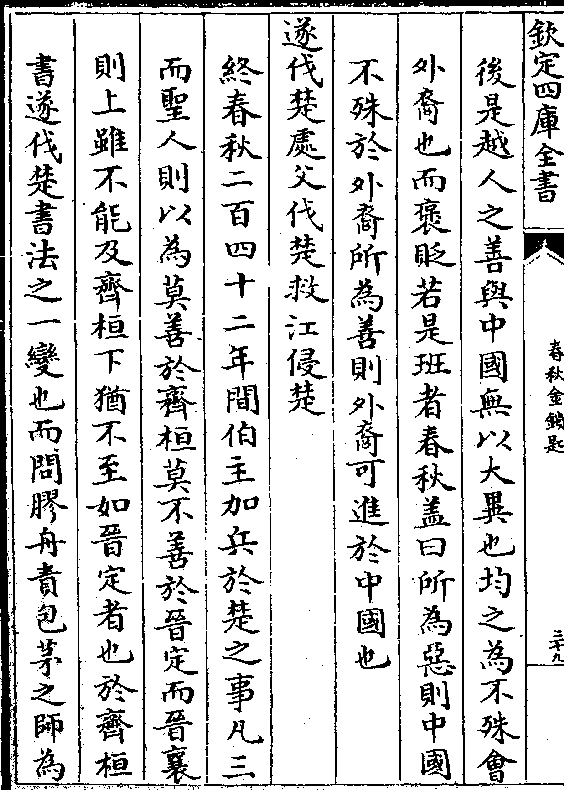 欽定四庫全書
春秋金鎖匙
三十九
後是越人之善與中國無以大異也均之為不殊會
外裔也而褒貶若是班者春秋盖曰所為惡則中國
不殊於外裔所為善則外裔可進於中國也
遂伐楚處父伐楚救江侵楚
終春秋二百四十二年間伯主加兵於楚之事凡三
而聖人則以為莫善於齊桓莫不善於晉定而晉襄
則上雖不能及齊桓下猶不至如晉定者也於齊桓
書遂伐楚書法之一變也而問膠舟責包茅之師為